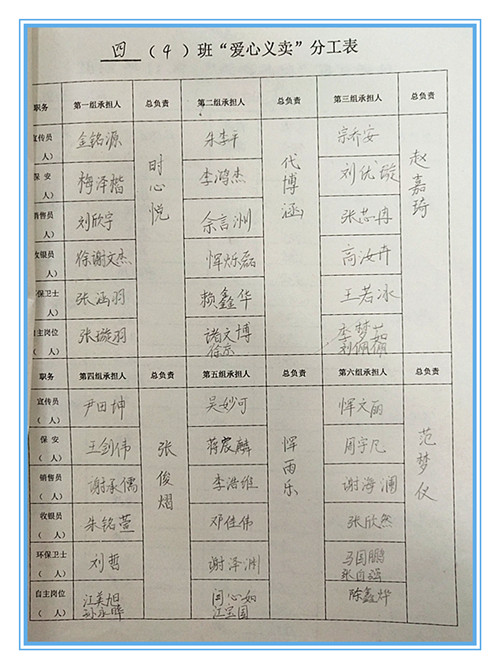 四（4）班“爱心义卖”分工表
职务 第一组承担人 总负责 第二组承担人 总负责 第三组承担人 总负责
宣传员 金铭源 朱李平 宗乔安
人）
保安 梅泽楷 时心悦 李鸿杰 代博涵 刘优璇 赵嘉琦
人）
销售员 刘欣宇 余言洲 张芯冉
人）
收银员 徐谢文杰 恽烁磊 高汝卉
人）
环保卫士 张涵羽 赖鑫华 王若冰
人）
自主岗位 张璇羽 诸文博 李梦
（ 人） 徐京 刘俪俪
职务 第四组承担人 总负责 第五组承担人 总负责 第六组承担人 总负责
宣传员 尹田坤 吴妙可 恽文丽
（ 人）
保安 王剑伟 张俊熠 蒋宸麟 恽雨乐 周宇凡 范梦仪
（ 人）
销售员 谢承儒 李浩维 谢海澜
（ 人）
收银员 朱铭萱 邓佳伟 张欣然
（ 人）
环保卫士 刘哲 谢泽洲 马国鹏
（ 人） 张自强
自主岗位 江美旭 闵心如 陈鑫烨
（ 人） 孙永晔 江宝国